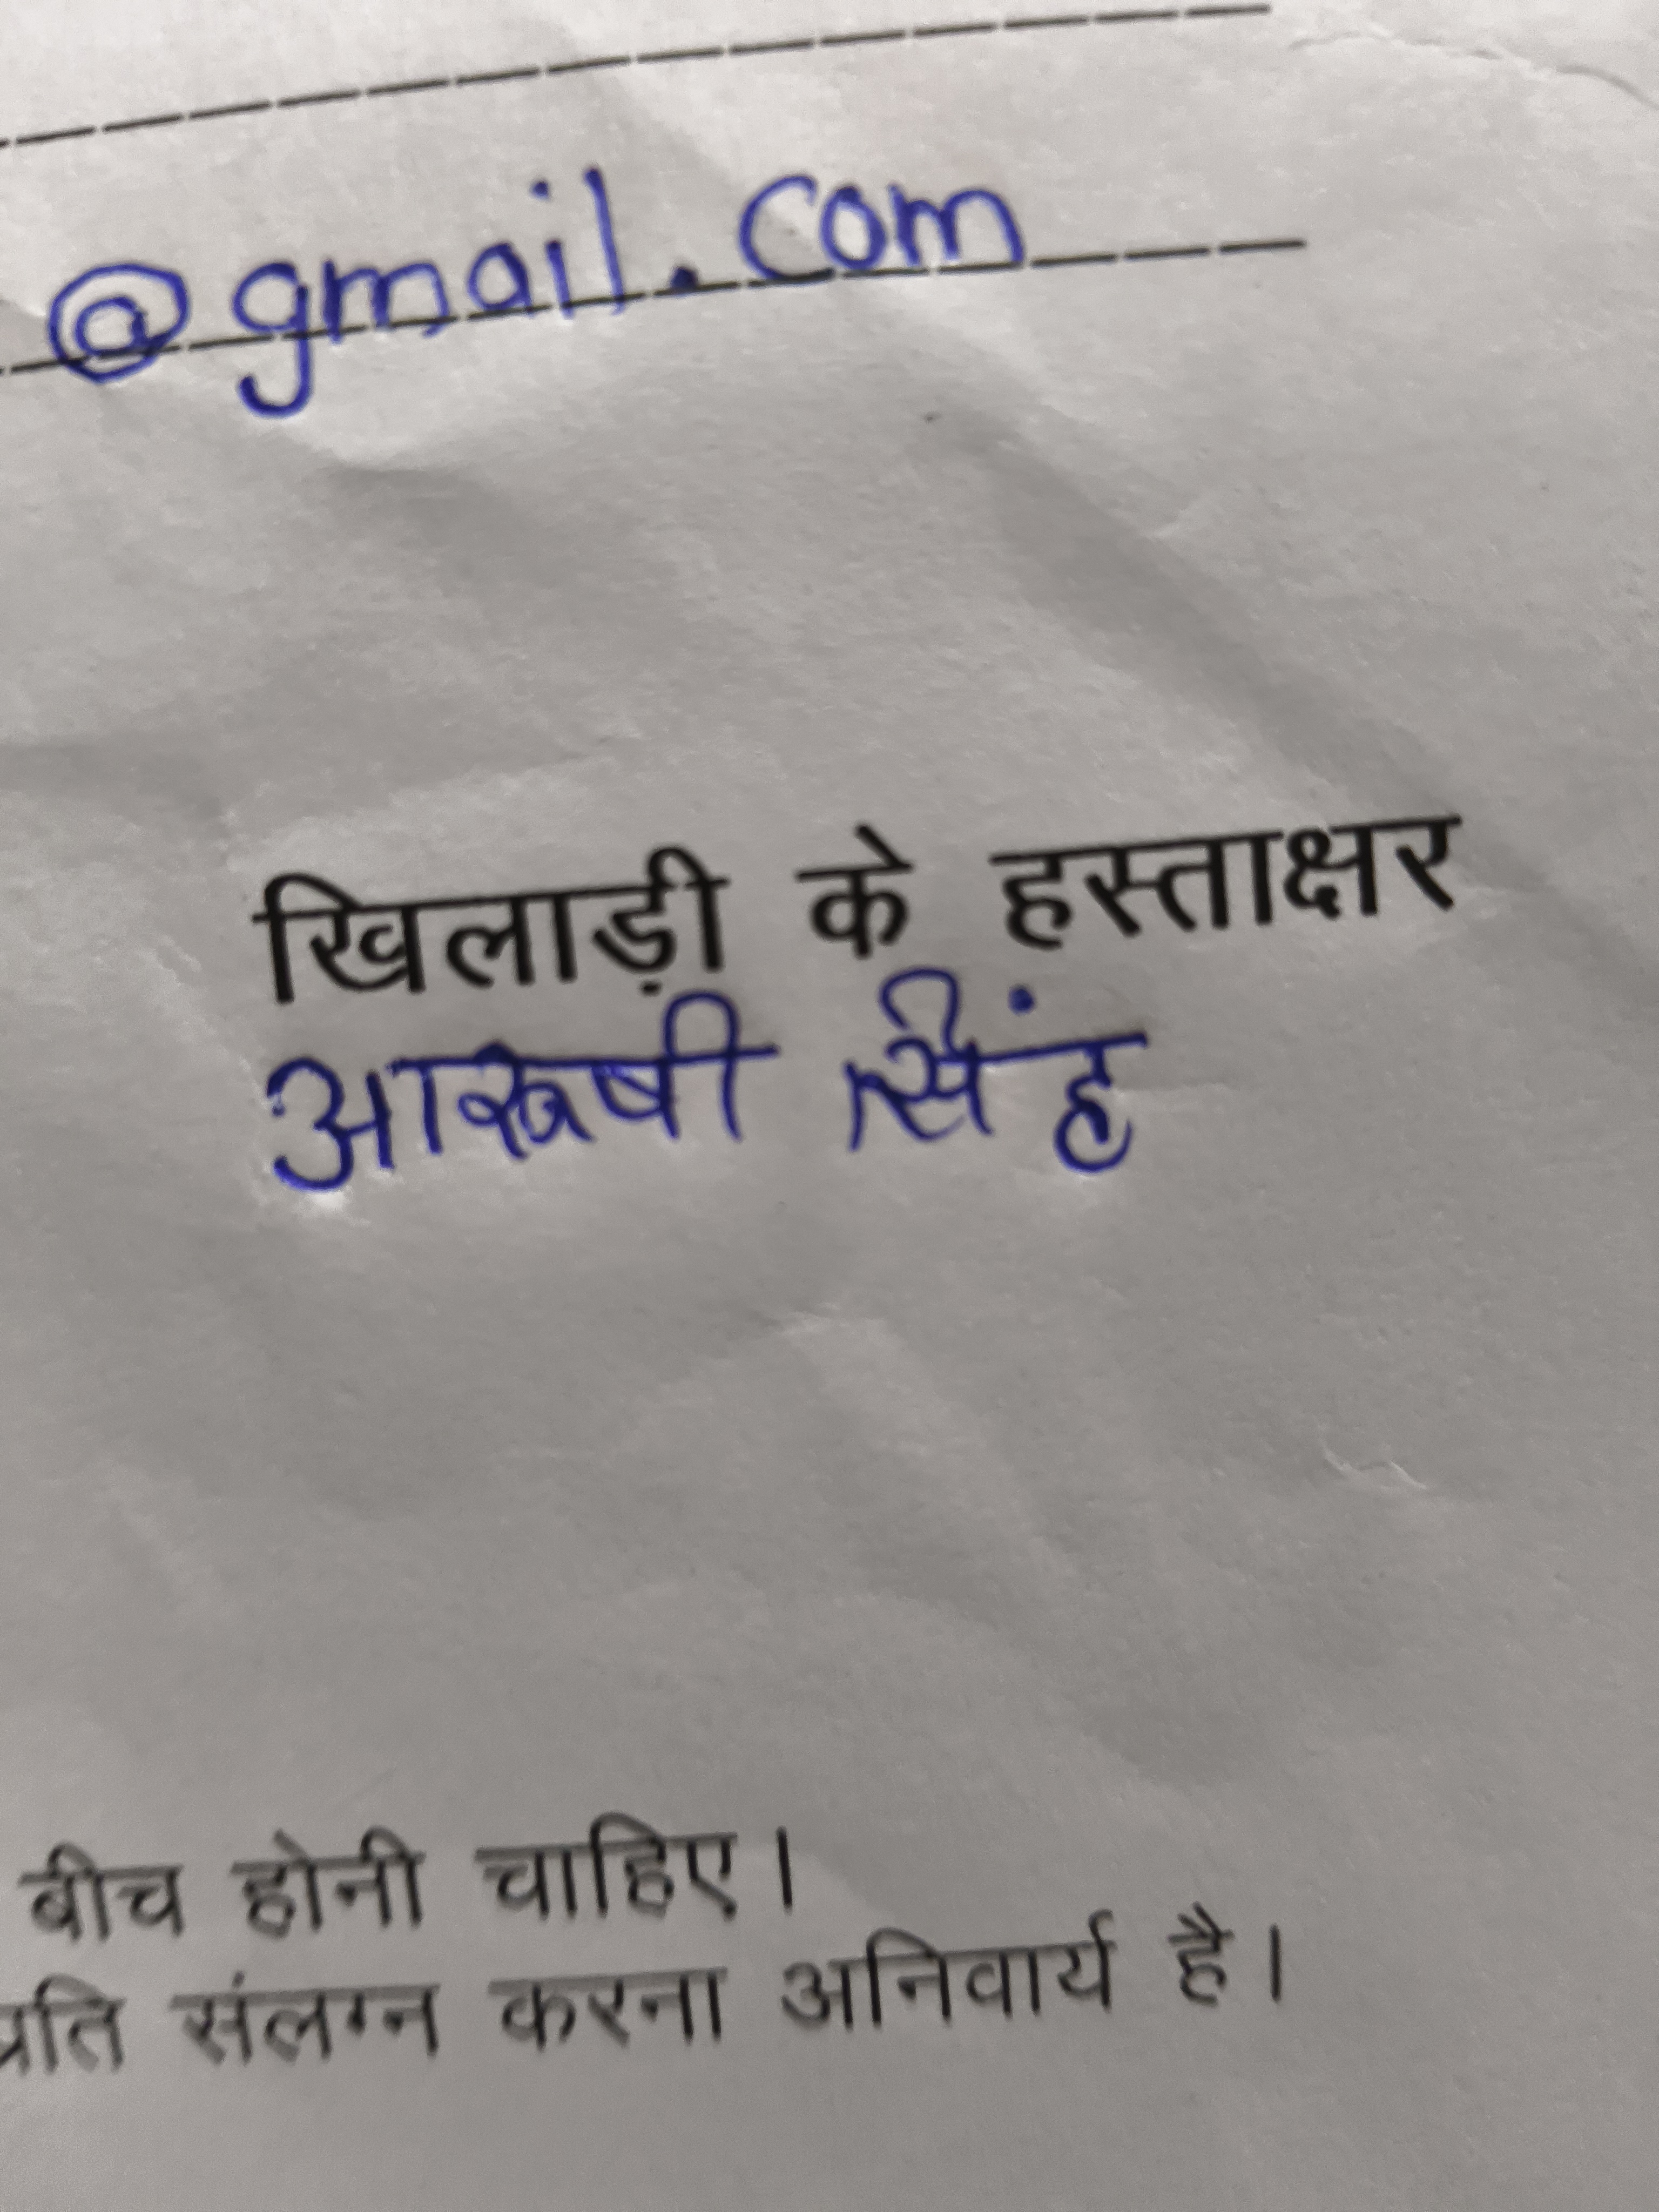 @gmail.com
खिलाड़ी के हस्ताक्षर
आरूषी सिंह
बीच होनी चाहिए।
प्रति संलग्न करना अनिवार्य है।